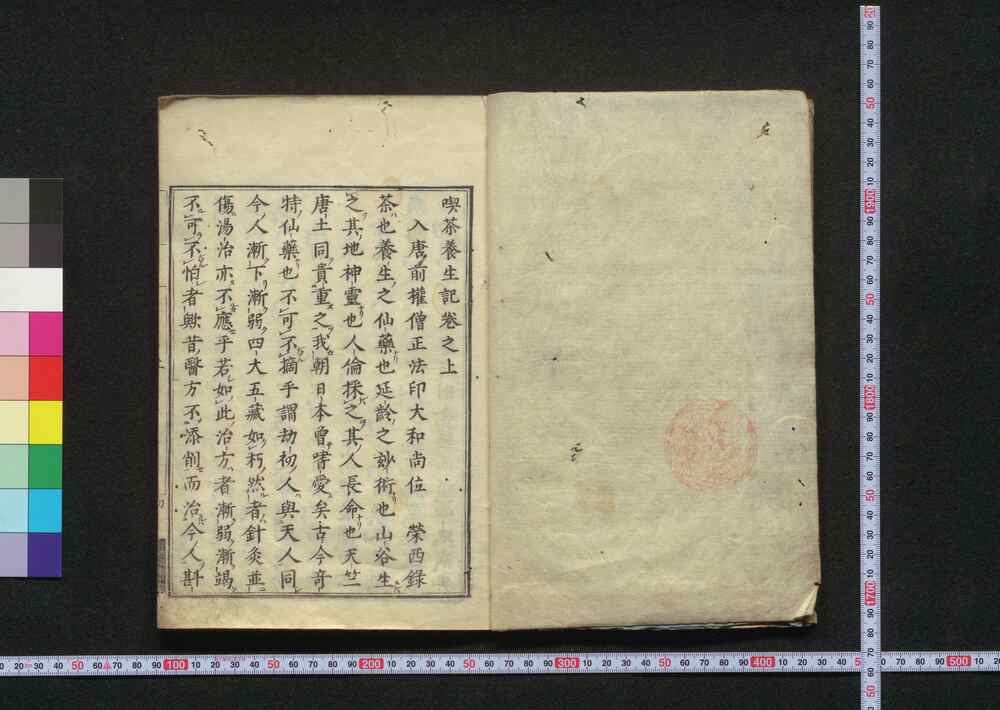 喫茶養生記卷之上
入唐前權僧正法印大和尚位 榮西録
茶也養生之仙藥也延齡之玅術也山谷生
之其地神靈也人倫採之其人長命也天竺
唐土同貴重之我朝日本曾嗜愛矣古今奇
特仙藥也不可不摘乎謂劫初人與天人同
今人漸下漸弱四大五藏如朽然者針灸並
傷湯治亦不應乎若如此治方者漸弱漸竭
不可不怕者歟昔醫方不添削而治今人斟